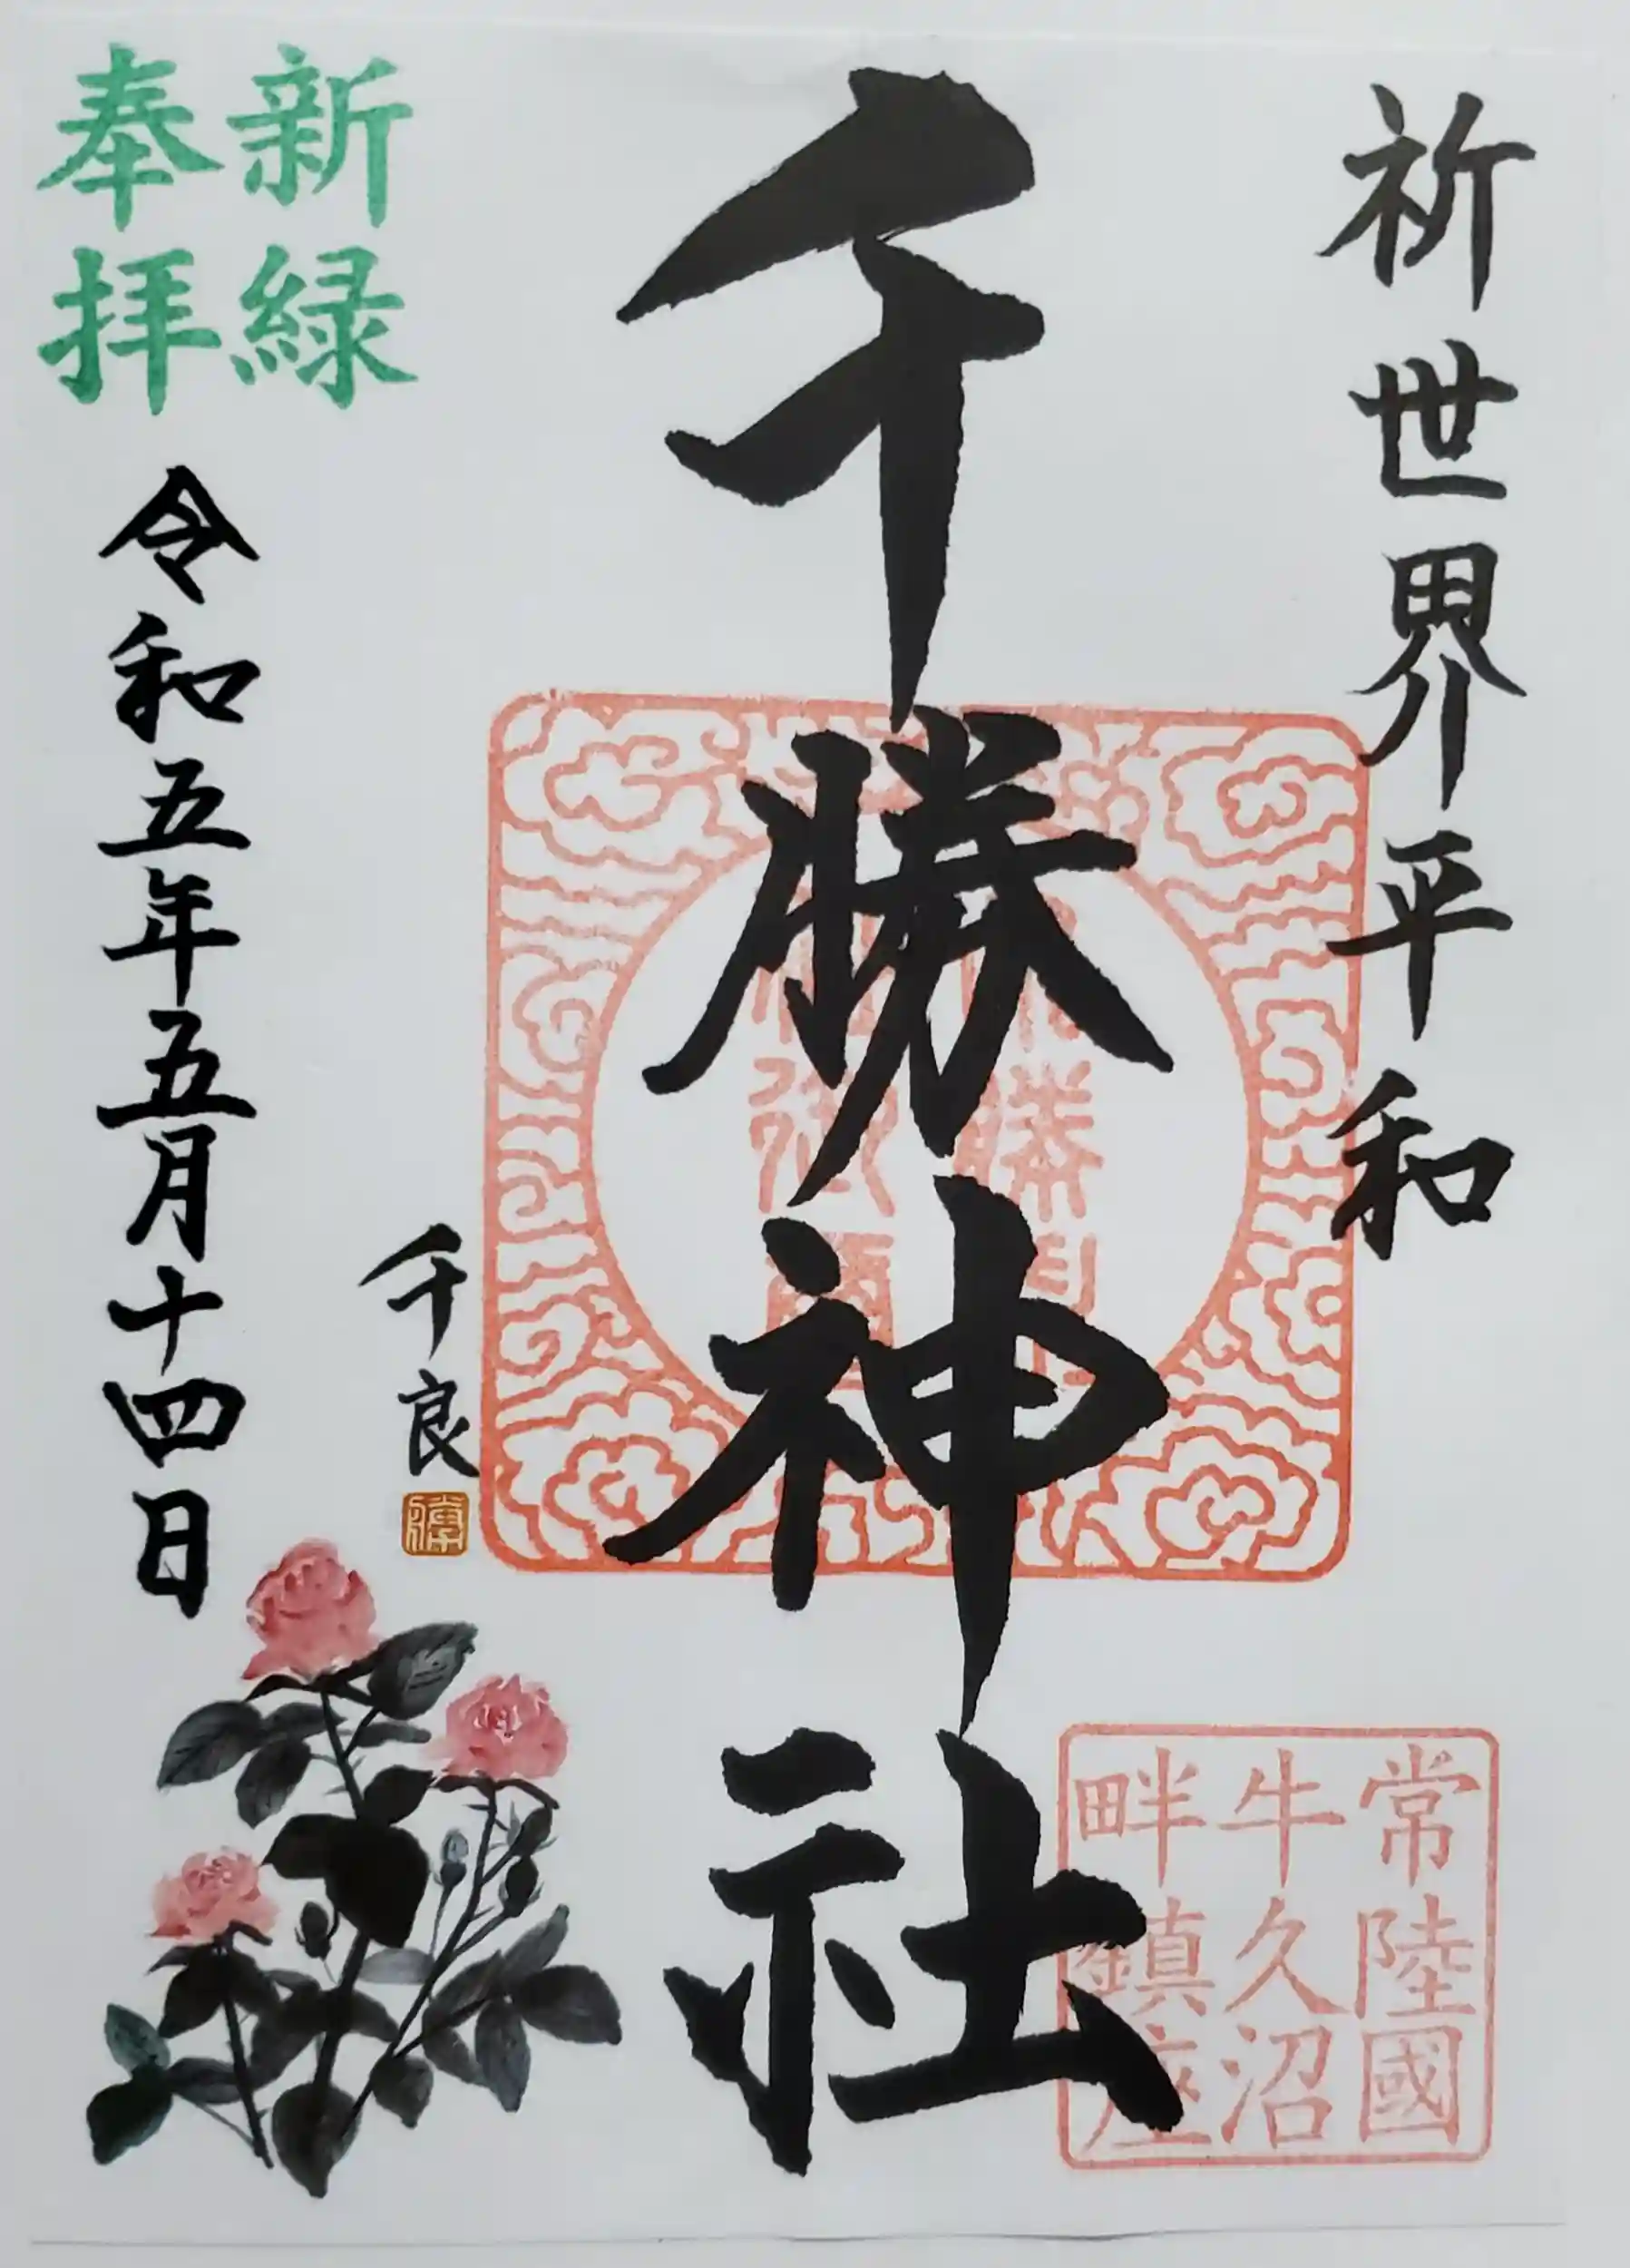 祈世界平和
千勝神社
常陸國
牛久沼
畔鎮座
千良
新緑
奉拝
令和五年五月十四日